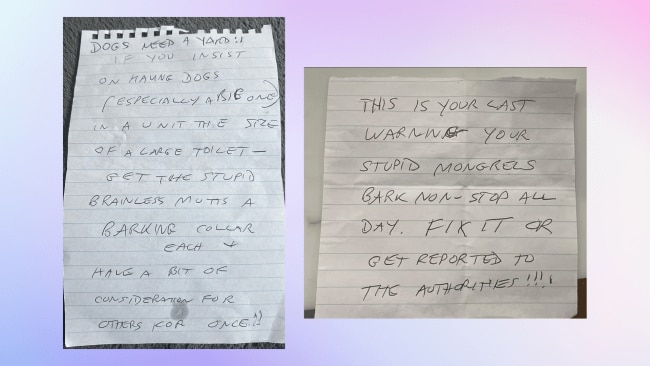 DOGS NEED A YARD!!
IF YOU INSIST
ON HAVING DOGS
(ESPECIALLY A BIG ONE)
IN A UNIT THE SIZE
OF A LARGE TOILET —
GET THE STUPID
BRAINLESS MUTTS A
BARKING COLLAR
EACH &
HAVE A BIT OF
CONSIDERATION FOR
OTHERS FOR ONCE!!
THIS IS YOUR LAST
WARNING YOUR
STUPID MONGRELS
BARK NON-STOP ALL
DAY. FIX IT OR
GET REPORTED TO
THE AUTHORITIES!!!!